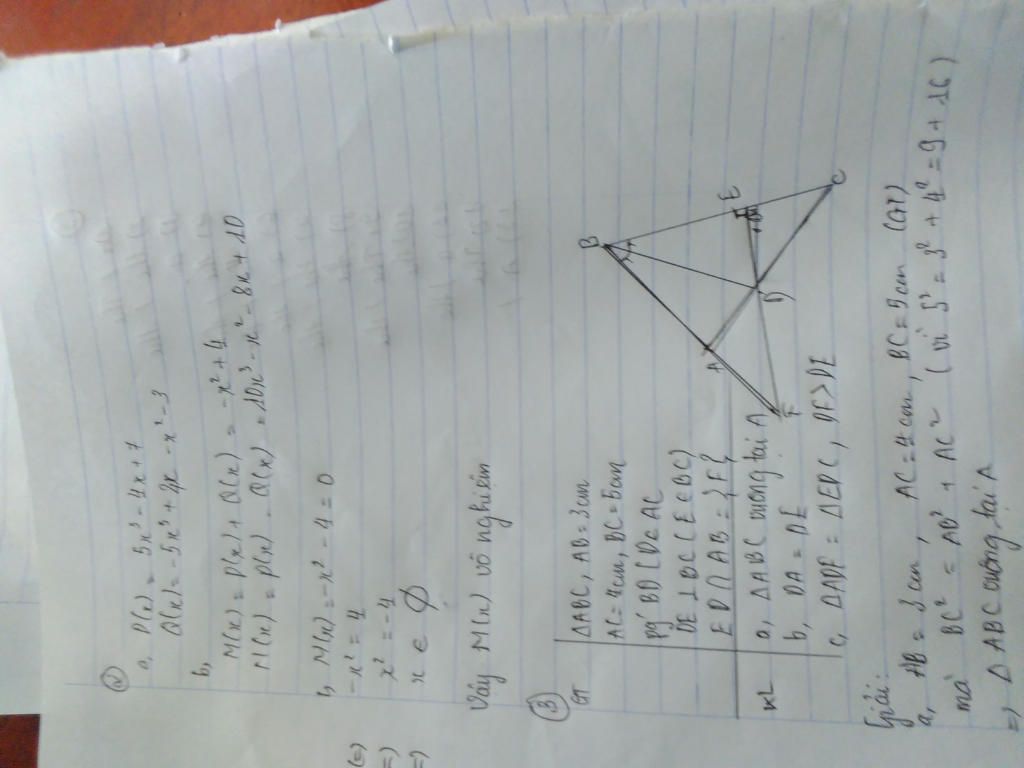 ②
a, P(x) = 5x³ - 4x + 7
Q(x) = -5x³ + 4x - x² - 3
b,
M(x) = P(x) + Q(x) = -x² + 4
N(x) = P(x) - Q(x) = 10x³ - x² - 8x + 10
c, M(x) = -x² - 4 = 0
(=) -x² = 4
=) x² = -4
=) x ∈ ∅
Vậy M(x) vô nghiệm
③
GT
ΔABC, AB = 3cm
AC = 4cm, BC = 5cm
pg' BD (D ∈ AC
DE ⊥ BC (E ∈ BC)
ED ∩ AB = {F}
KL
a, ΔABC vuông tại A
b, DA = DE
c, ΔADF = ΔEDC, DF > DE
B
E
C
D
A
F
Giải:
a, AB = 3cm, AC = 4cm, BC = 5cm (GT)
mà BC² = AB² + AC² (vì 5² = 3² + 4² = 9 + 16)
=) Δ ABC vuông tại A